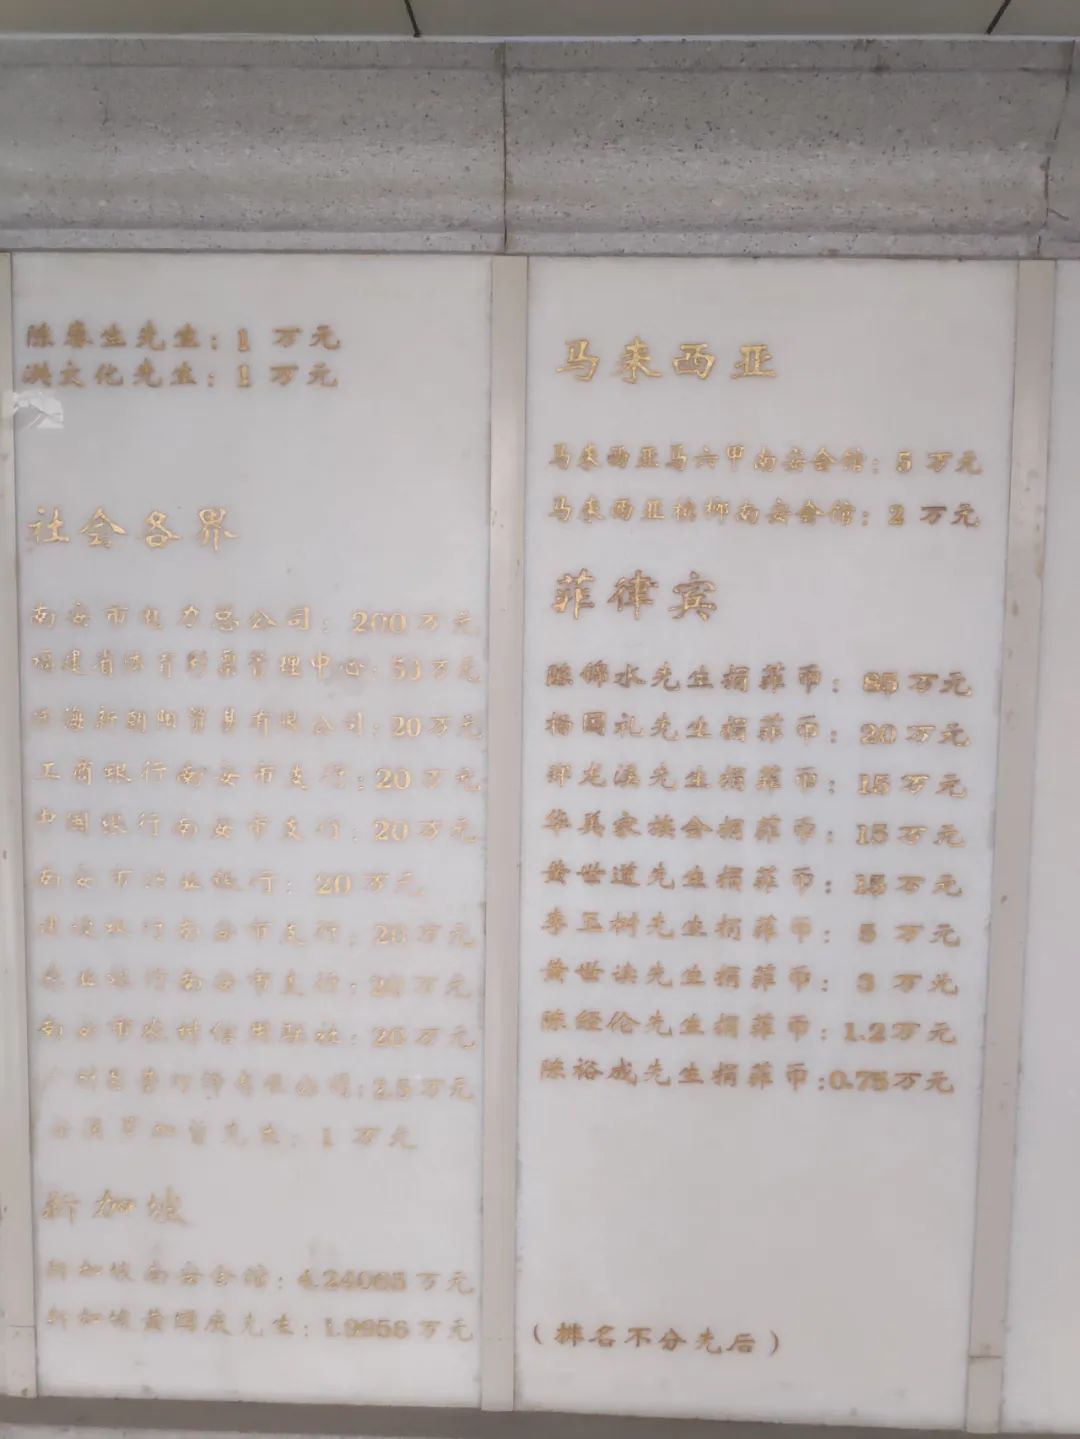 陈春生先生：1 万元
洪文化先生：1 万元
社会各界
南安市电力总公司：200万元
福建省体育彩票管理中心：53万元
海新朝阳贸易有限公司：20万元
工商银行南安市支行：20万元
中国银行南安市支行：20万元
南安市兴业银行：20万元
建设银行南安市支行：20万元
农业银行南安市支行：20万元
南安市农村信用联社：20万元
有限公司：2.5万元
先生：1 万元
新加坡
新加坡南安会馆：4.24065万元
新加坡黄国庆先生：1.9956万元
马来西亚
马来西亚马六甲南安会馆：5 万元
马来西亚槟榔南安会馆：2 万元
菲律宾
陈锦水先生捐菲币：85万元
杨国礼先生捐菲币：20万元
龙溪先生捐菲币：15万元
华美家族会捐菲币：15万元
黄世道先生捐菲币：15万元
李玉树先生捐菲币：5 万元
黄世谈先生捐菲币：3 万元
陈经伦先生捐菲币：1.2万元
陈裕成先生捐菲币：0.75万元
（排名不分先后）